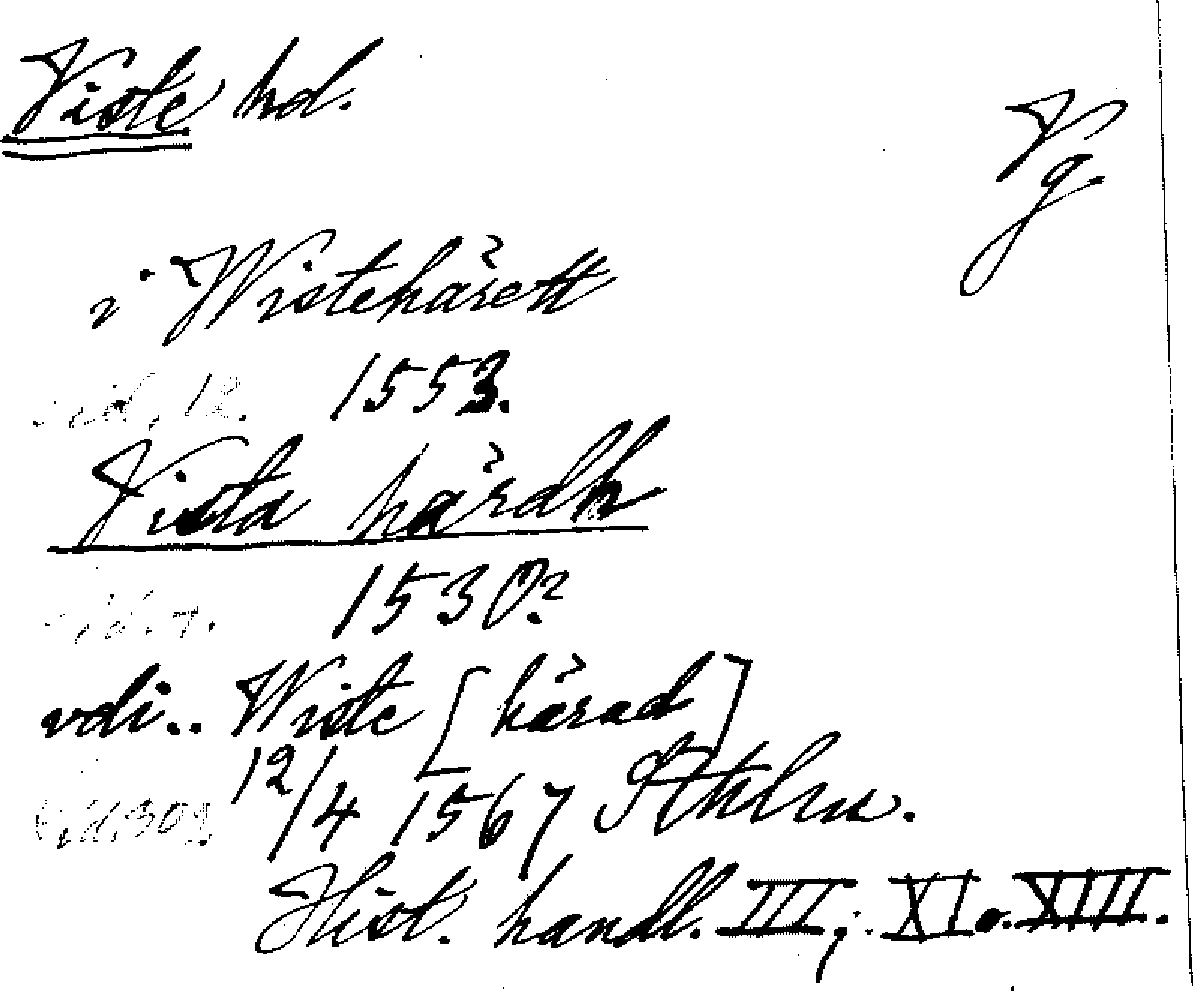 Viste hd.
Vg.
i Wistehärett
sid. 12. 1553.
Vista härdh
sid. 7. 1530?
vdi.. Wiste [härad]
12/4 1567 Sthlm.
Hist. handl. III; XI o. XIII.